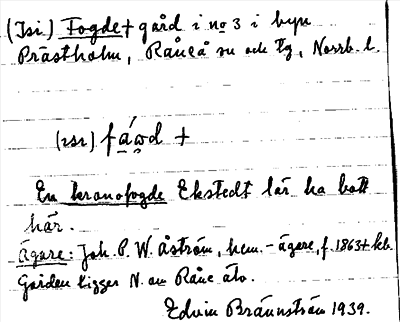 (Isi) Fogde + gård i no 3 i byn
Prästholm, Råneå sn och tg, Norrb. l.
(isi) fáwd +
En kronofogde Ekstedt lär ha bott
här.
Ägare: Joh. P. W. Åström, hem.-ägare, f. 1863 + kb.
Gården ligger N. om Råne älv.
Edvin Brännström 1939.